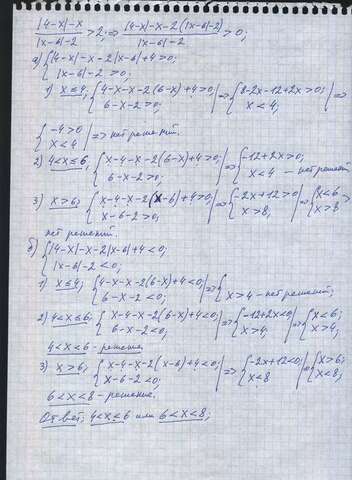 |4-x|-x / |x-6|-2 > 2; => |4-x|-x-2(|x-6|-2) / |x-6|-2 > 0;
а) { |4-x|-x-2|x-6|+4>0;
|x-6|-2>0;
1) x≤4, { 4-x-x-2(6-x)+4>0; | => { 8-2x-12+2x>0; | =>
6-x-2>0; x<4,
{ -4>0 | => нет решений.
x<4
2) 4<x≤6, { x-4-x-2(6-x)+4>0; | => { -12+2x>0;
6-x-2>0; x<4 – нет решений
3) x>6; { x-4-x-2(x-6)+4>0; | => { -2x+12>0 | => { x<6 =>
x-6-2>0; x>8, x>8
нет решений.
б) { |4-x|-x-2|x-6|+4<0;
|x-6|-2<0;
1) x≤4, { 4-x-x-2(6-x)+4<0 | => {
6-x-2<0; x>4 – нет решений;
2) 4<x≤6; { x-4-x-2(6-x)+4<0; | => { -12+2x<0 | => { x<6;
6-x-2<0; x>4; x>4,
4<x<6 – решение
3) x>6; { x-4-x-2(x-6)+4<0; | => { -2x+12<0; | { x>6;
x-6-2<0; x<8 x<8,
6<x<8 – решение.
Ответ; 4<x<6 или 6<x<8;